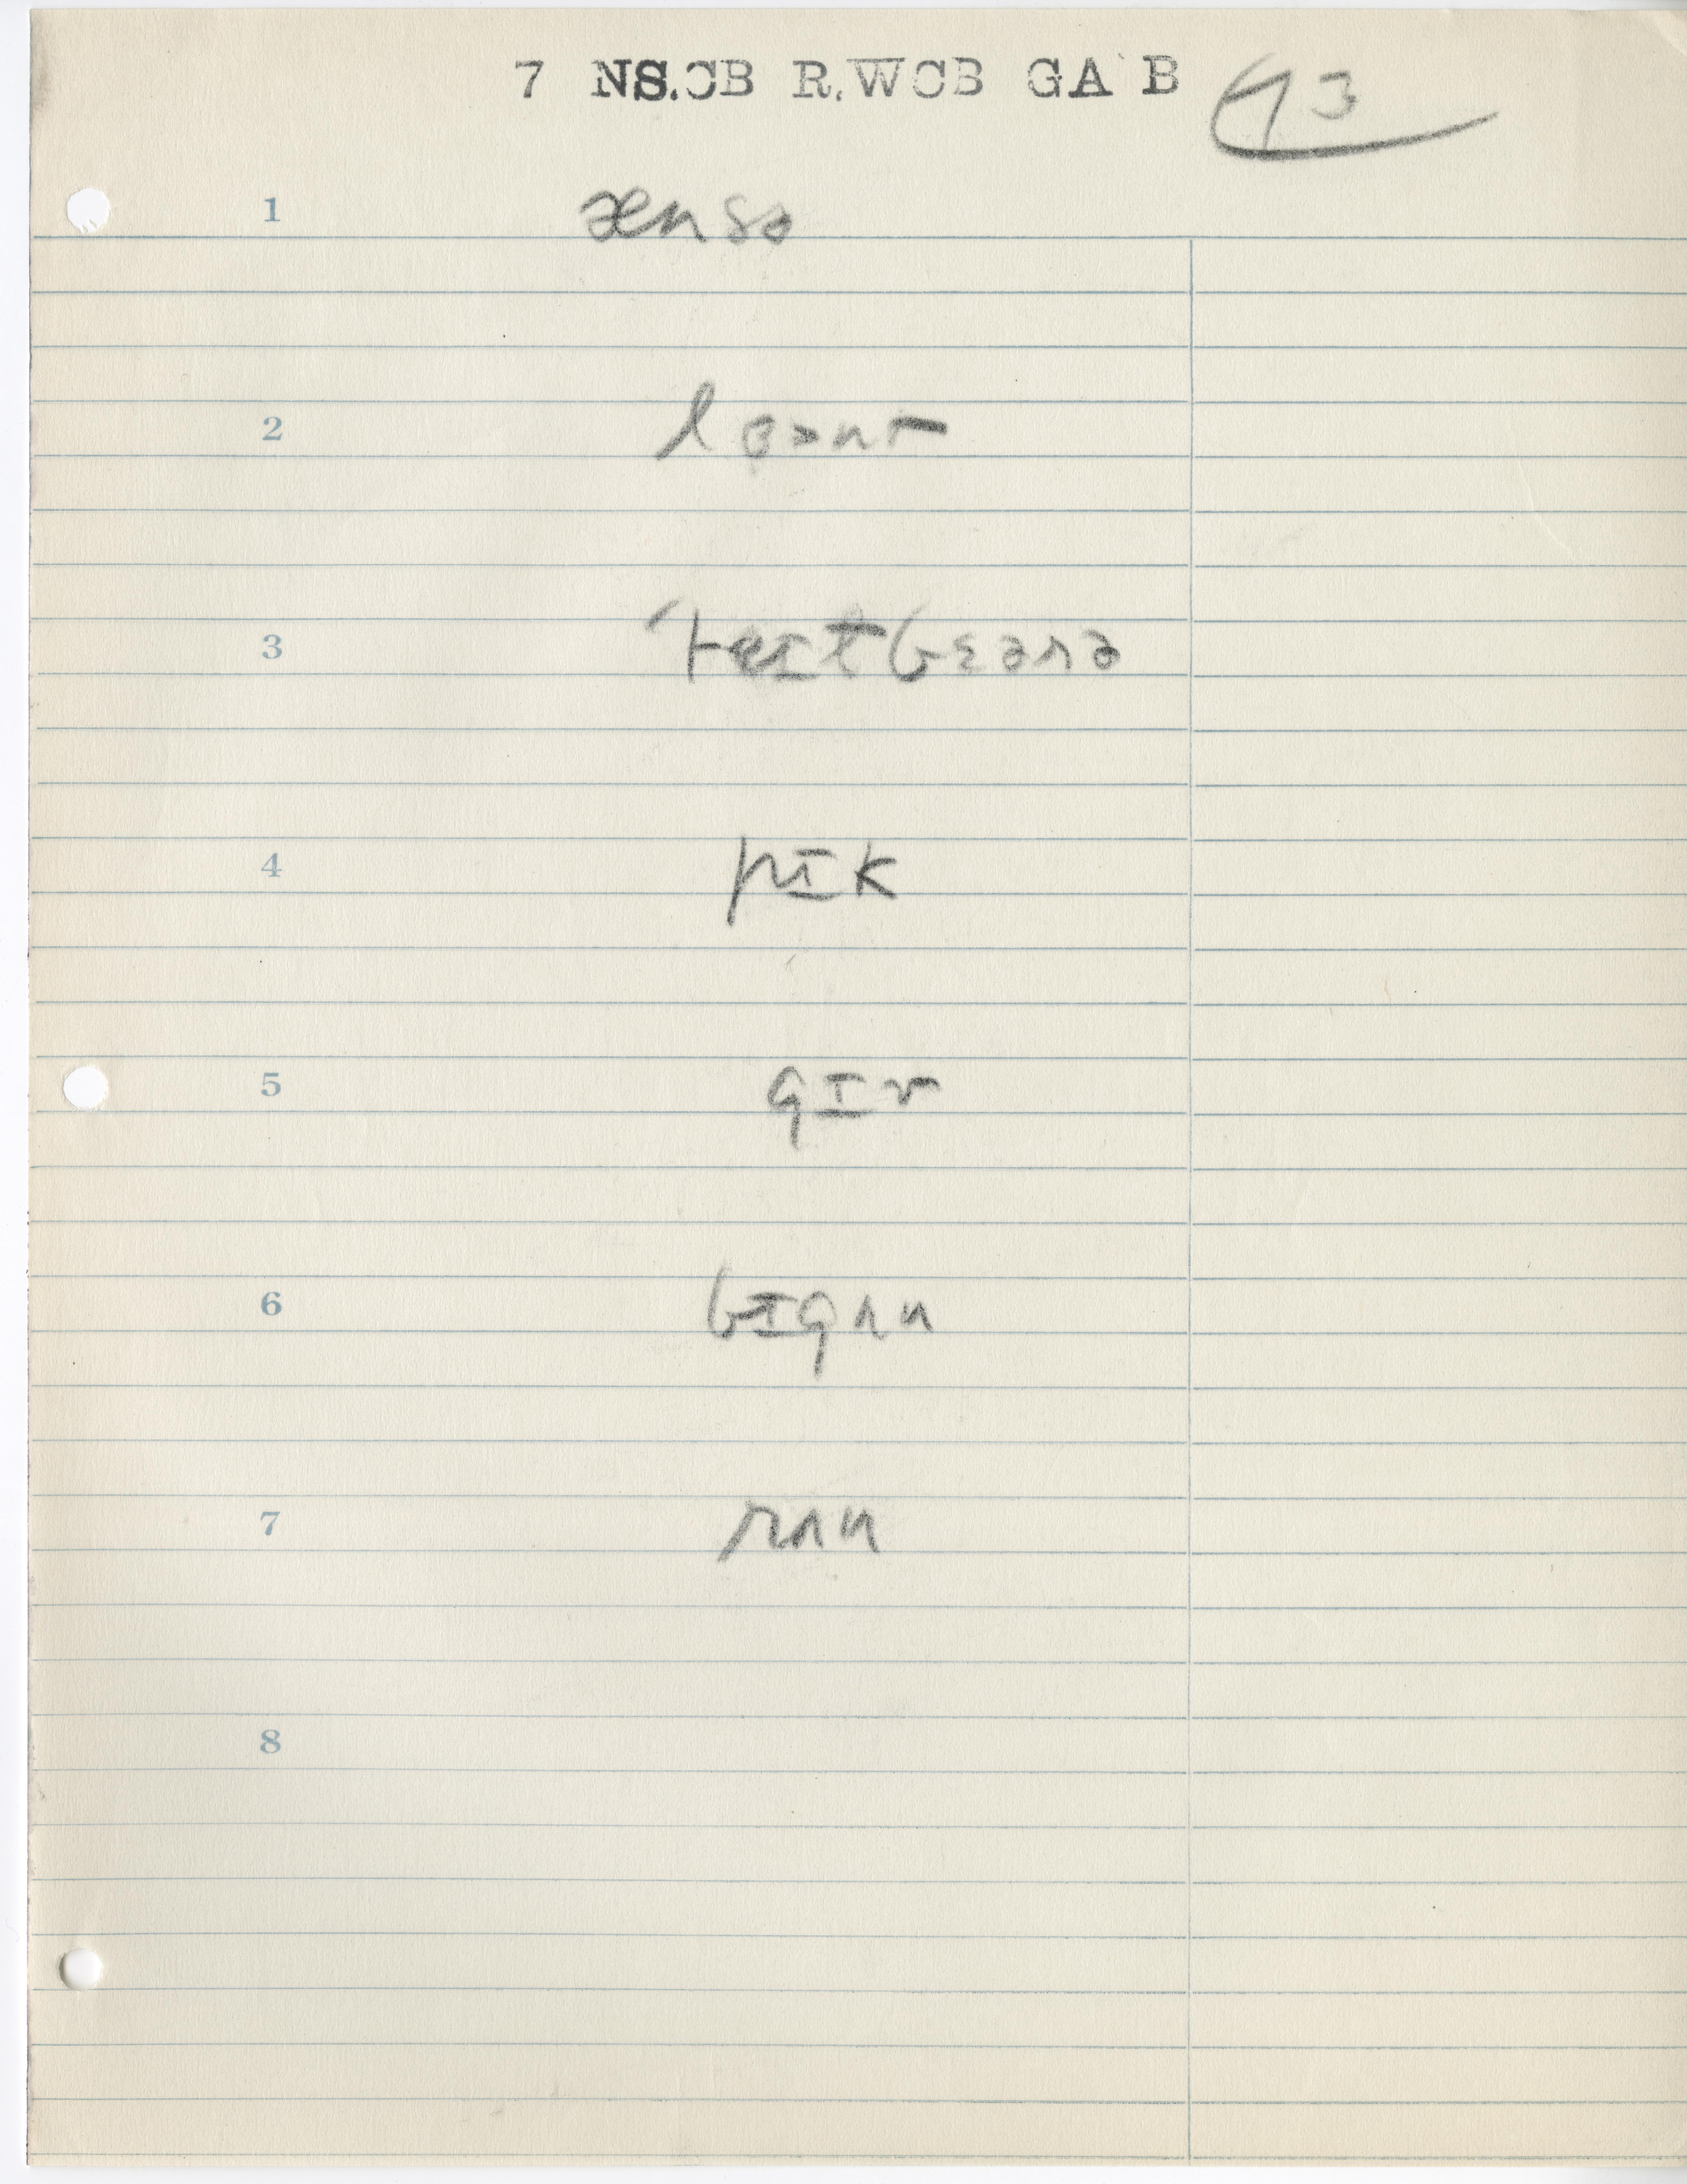 7 NS.CB R.WCB GA B 93
1 ænsə
2 lɵənt
3 ˈteɪtbɛərə
4 pɪk
5 gɪv
6 bɪgʌn
7 rʌn
8